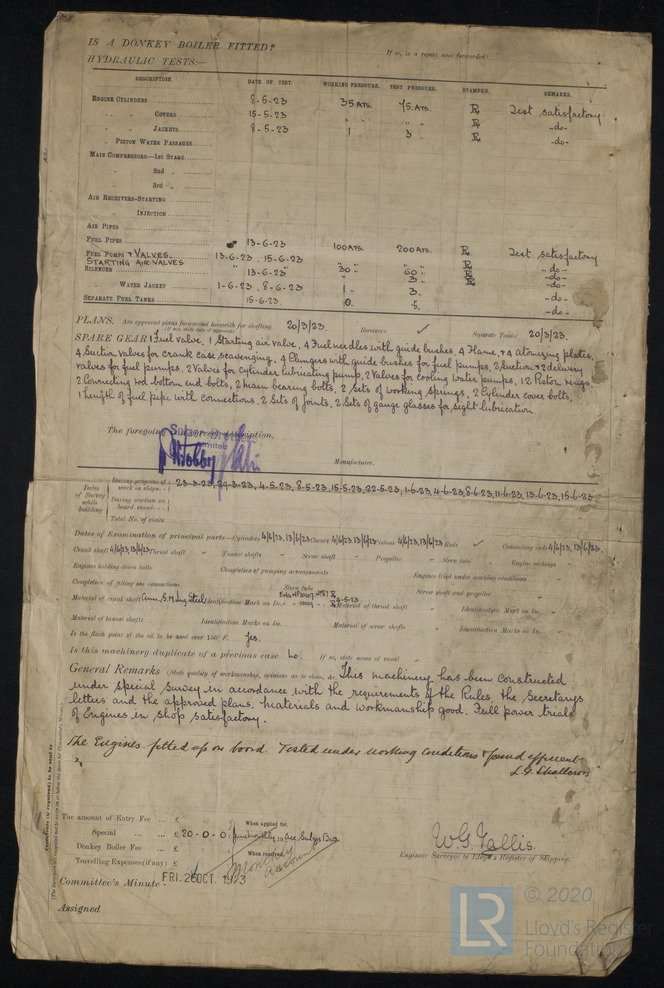 IS A DONKEY BOILER FITTED? If so, is a report now forwarded?
HYDRAULIC TESTS:—
DESCRIPTION. DATE OF TEST. WORKING PRESSURE. TEST PRESSURE. STAMPED. REMARKS.
ENGINE CYLINDERS 8-5-23 35 ATS. 75 ATS. R Test satisfactory
" " COVERS 15-5-23 " " " " R -do-
" " JACKETS 8-5-23 1 " 3 " R -do-
" PISTON WATER PASSAGES -do-
MAIN COMPRESSORS—1ST STAGE
" 2ND "
" 3RD "
AIR RECEIVERS—STARTING
" INJECTION
AIR PIPES
FUEL PIPES 13-6-23 100 ATS. 200 ATS. R Test satisfactory
FUEL PUMPS & VALVES. 13-6-23 . 15-6-23 " " R -do-
STARTING AIR VALVES
SILENCER " 13-6-23 " 30 " 60 " R -do-
" WATER JACKET 1-6-23 . 8-6-23 1 - 3 -do-
SEPARATE FUEL TANKS 15-6-23. 0. 5. -do-
PLANS. Are approved plans forwarded herewith for shafting 20/3/23. Receivers ✓ Separate Tanks 20/3/23.
(If not, state date of approval)
SPARE GEAR 1 Fuel valve, 1 Starting air valve, 4 Fuel needles with guide bushes, 4 Flame, & 4 atomizing plates,
4 Suction valves for crank case scavenging, 4 Plungers with guide bushes for fuel pumps, 2 Suction & 2 delivery
valves for fuel pumps. 2 Valves for cylinder lubricating pump, 2 Valves for cooling water pumps, 12 Piston rings.
2 Connecting rod bottom end bolts, 2 main bearing bolts, 2 Sets of working springs, 2 Cylinder cover bolts,
1 Length of fuel pipe with connections, 2 Sets of joints, 2 Sets of gauge glasses for sight lubrication.
The foregoing is a correct description,
Manufacturer.
Dates of Survey while building
During progress of work in shops-- 23-3-23, 29-3-23, 4-5-23, 8-5-23, 15-5-23, 22-5-23, 1-6-23, 4-6-23, 8-6-23, 11-6-23, 13-6-23, 15-6-23
During erection on board vessel---
Total No. of visits
Dates of Examination of principal parts—Cylinders 4/6/23, 13/6/23 Covers 4/6/23, 13/6/23 Pistons 4/6/23, 13/6/23 Rods ✓ Connecting rods 4/6/23, 13/6/23.
Crank shaft 4/6/23, 13/6/23 Thrust shaft " Tunnel shafts " Screw shaft " Propeller " Stern tube " Engine seatings "
Engines holding down bolts Completion of pumping arrangements Engines tried under working conditions
Completion of fitting sea connections Stern tube Screw shaft and propeller
Material of crank shaft S.M. Ing. Steel Identification Mark on Do. Material of thrust shaft Identification Mark on Do.
Material of tunnel shafts Identification Marks on Do. Material of screw shafts Identification Marks on Do.
Is the flash point of the oil to be used over 150° F. Yes.
Is this machinery duplicate of a previous case No. If so, state name of vessel
General Remarks (State quality of workmanship, opinions as to class, &c. This machinery has been constructed
under Special Survey in accordance with the requirements of the Rules, the Secretarys
letters and the approved plans. Materials and workmanship good. Full power trials
of Engines in shop satisfactory.
The Engines fitted up on board. Tested under working conditions & found efficient
The amount of Entry Fee ... £ : : When applied for,
Special ... ... £ 20 - 0 - 0
Donkey Boiler Fee ... £ : : When received,
Travelling Expenses (if any) £ : :
W.G. Fallis.
Engineer Surveyor to Lloyd's Register of Shipping.
Committee's Minute FRI. 26 OCT. 1923
Assigned
© 2020
LR
Lloyd's Register
Foundation